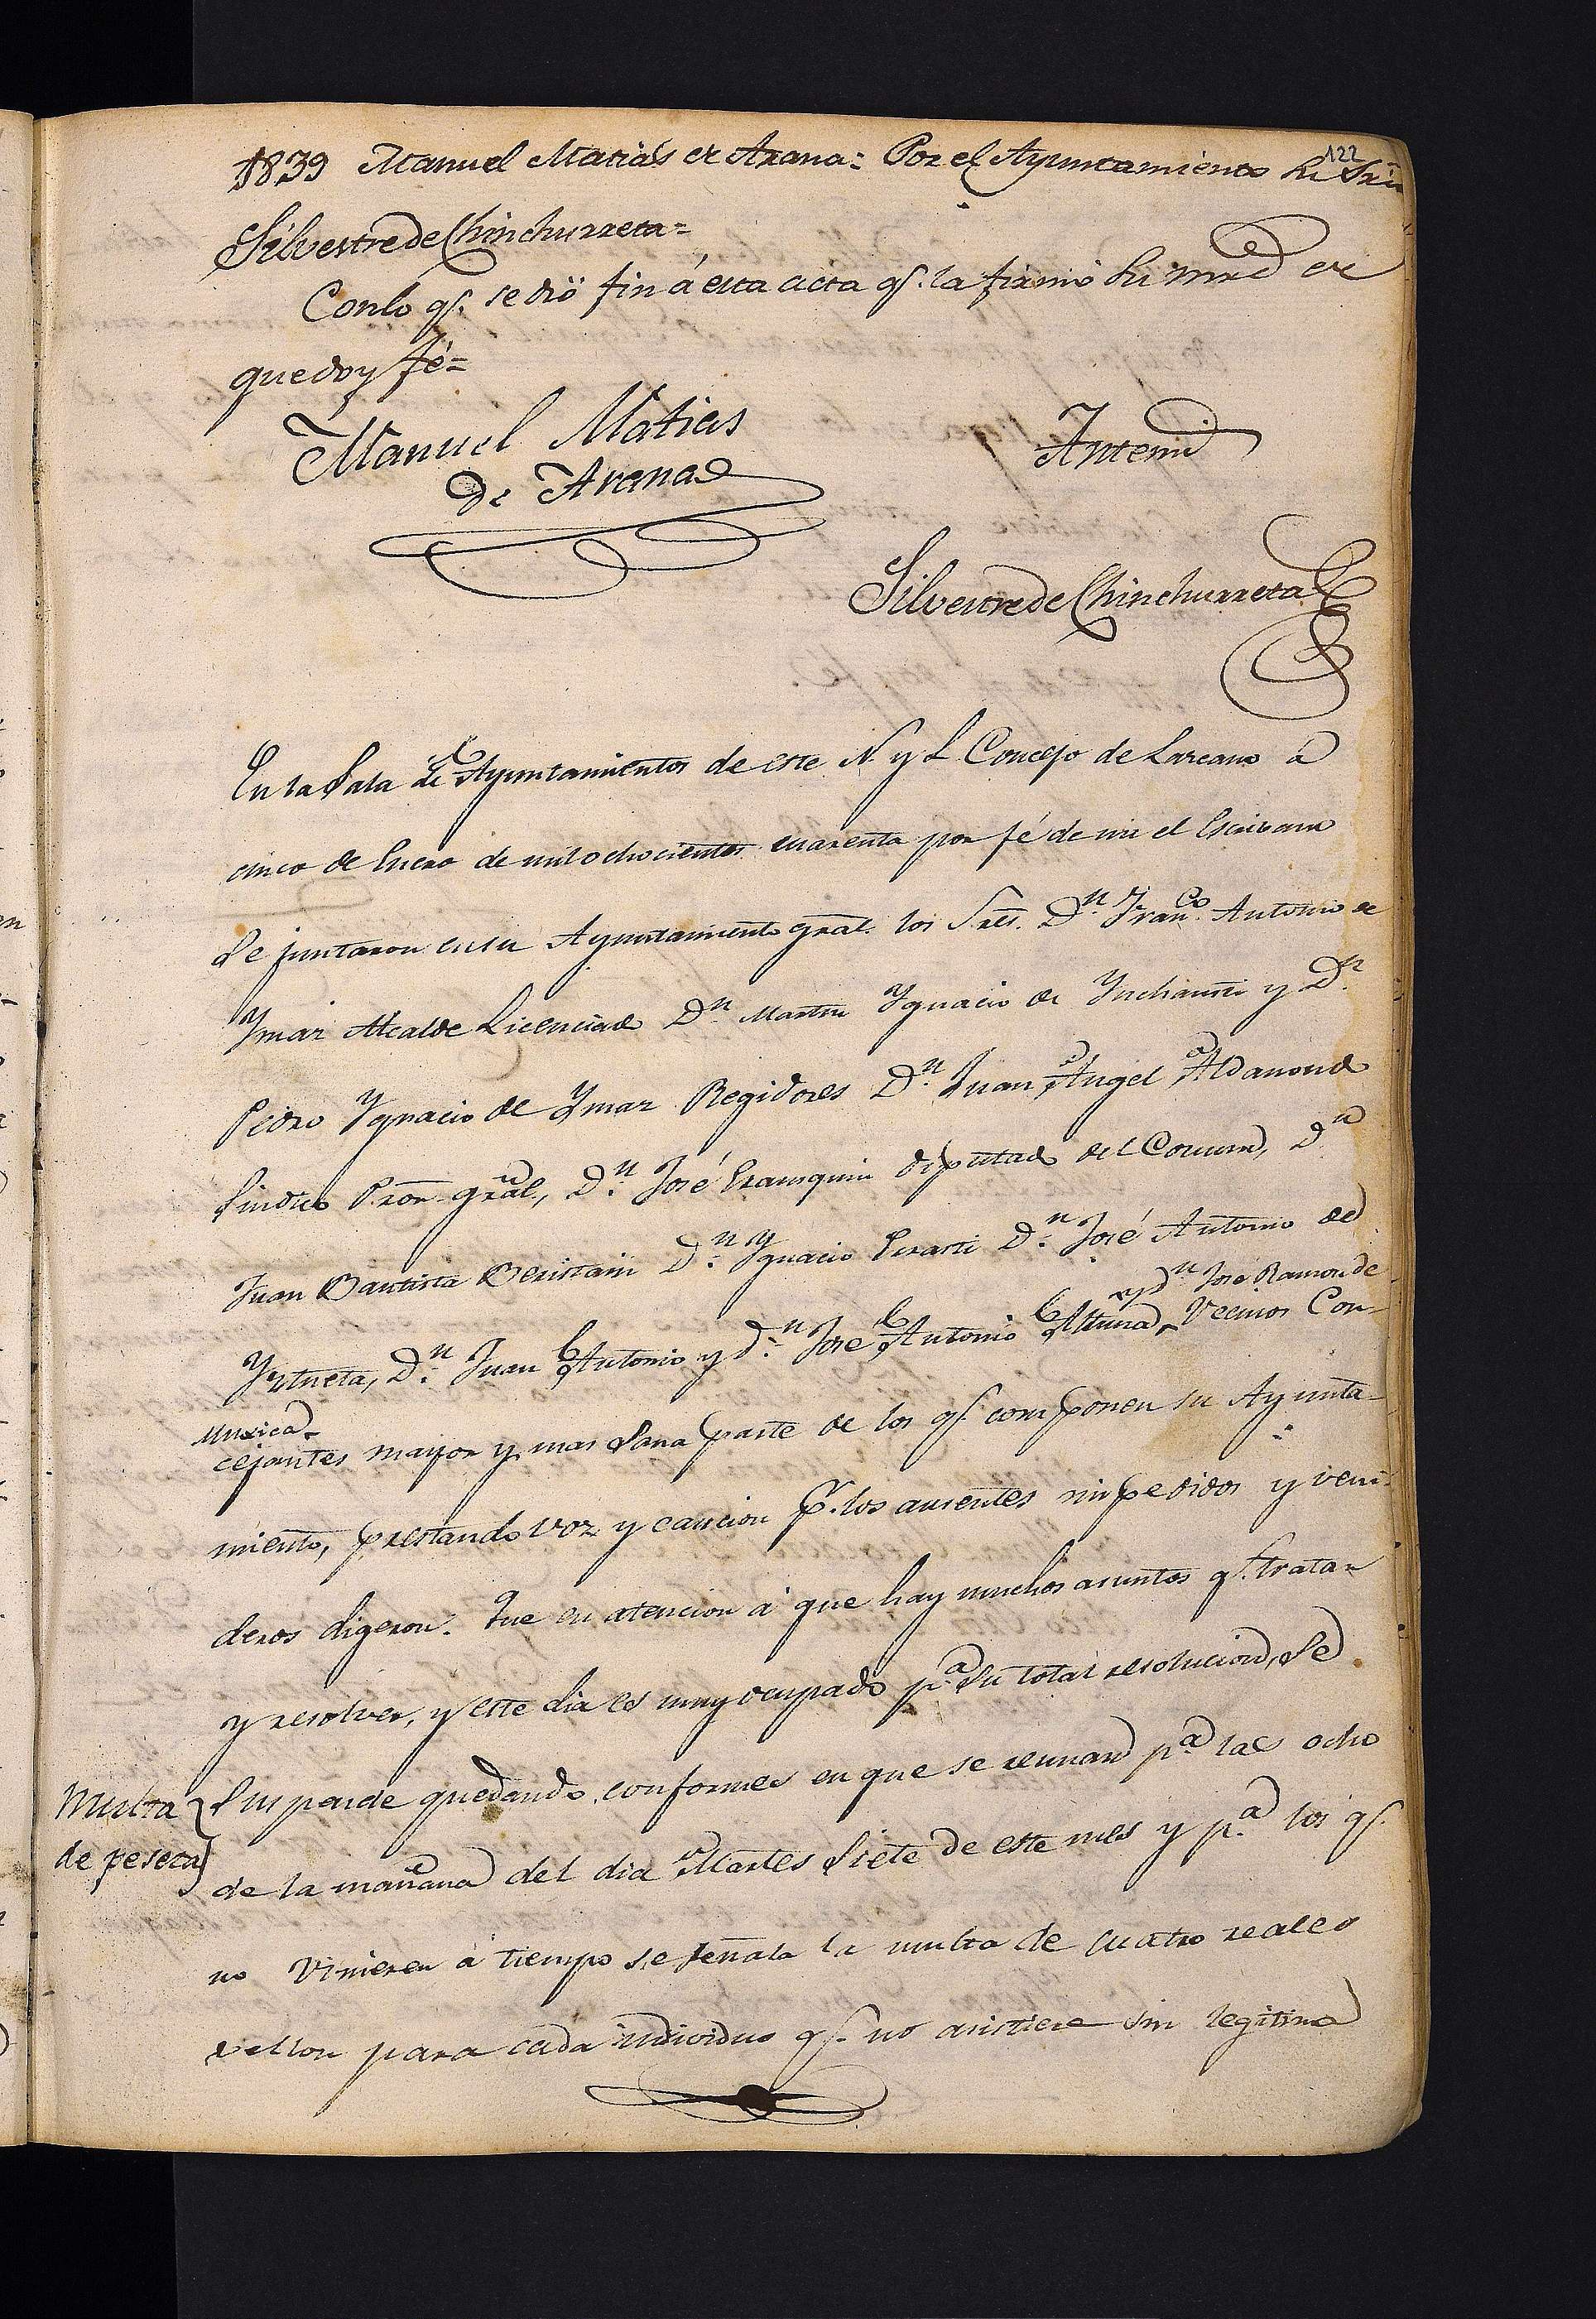 122
1839 Manuel Matias de Arana = Por el Ayuntamiento su Srio
Silvestre de Chinchurreta =
Con lo qe. se dió fin á esta acta qe. la firmó su mrd de
que doy fé =
Manuel Matias
de Arana
Antemi
Silvestre de Chinchurreta
En la Sala de Ayuntamientos de este N. y L. Concejo de Lazcano a
cinco de Enero de mil ochocientos cuarenta por fé de mi el Escribano
se juntaron en su Ayuntamiento gral. los Sres. Dn. Franco. Antonio de
Ymaz Alcalde Licenciado Dn. Martin Ygnacio de Inchausti y Dn.
Pedro Ygnacio de Ymaz Regidores Dn. Juan Angel Aldanondo
Sindico Pror. gral, Dn. José Erausquin diputado del Comun, Dn.
Juan Bautista Beristain Dn. Ygnacio Ynarti Dn. José Antonio de
y Dn. José Ramon de
Yztueta, Dn. Juan Antonio y Dn. José Antonio Altuna, Vecinos Con-
Muxica
cejantes mayor y mas sana parte de los qe. componen su Ayunta-
miento, prestando voz y caucion pr. los ausentes impedidos y veni-
deros digeron: Que en atencion á que hay muchos asuntos qe. tratar
y resolver, y este dia es muy ocupado pa. su total resolucion, se
suspende quedando conformes en que se reunan pa. las ocho
Multa
de peseta
de la mañana del dia Martes siete de este mes y pa. los qe.
no vinieren á tiempo se señala la multa de cuatro reales
vellon para cada individuo qe. no asistiere sin legitima